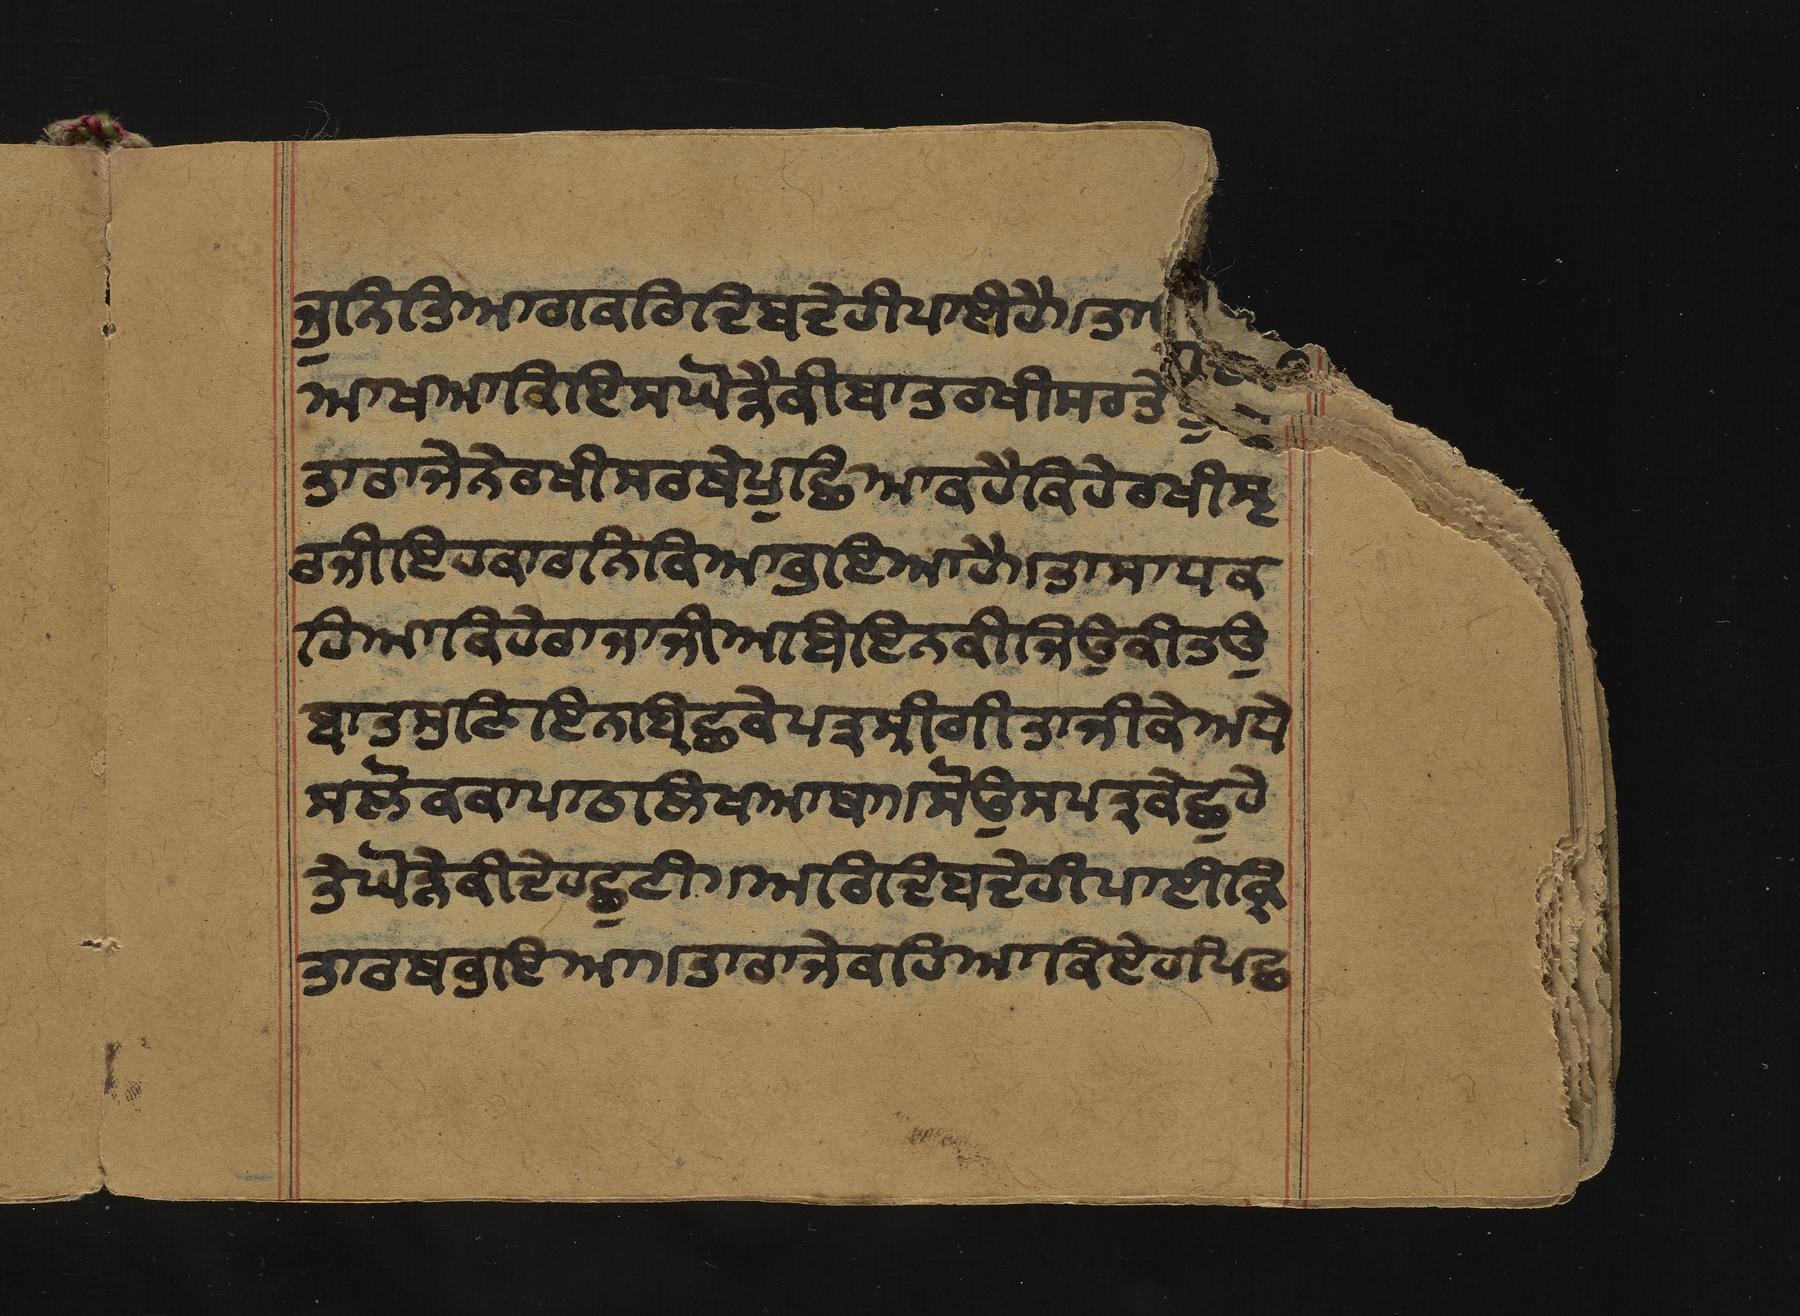 ਜੁਨਿਤਿਆਗਕਰਿਦਿਬਦੇਹੀਪਾਈਹੈ।ਤਾ
ਆਖਆਕਿਇਸਘੋੜੈਕੀਬਾਤਰਖੀਸਰਤੇ
ਤਾਰਾਜੇਨੇਰਖੀਸਰਥੇਪੁਛਿਆਕਹੈਕਿਹੇਰਖੀਸ੍ਵ
ਰਜੀਇਹਕਾਰਨਿਕਿਆਕੁਇਆਹੈ।ਤਾਸਾਧਕ
ਹਿਆਕਿਹੇਰਾਜਾਜੀਆਬਿਇਨਕੀਜਿਉਕੀਤਉ
ਬਾਤਸੁਣਿਇਨਪਿਛਕੇਪਤ੍ਰਸ੍ਰੀਗੀਤਾਜੀਕੇਅਧੇ
ਸਲੋਕਕਾਪਾਠਲਿਖਆਥਾ।ਸੋਉਸਪਤ੍ਰਕੇਛੁਹੇ
ਤੇਘੋੜੇਕੀਦੇਹਛੁਟੀ।ਅਰਿਦਿਬਦੇਹੀਪਾਈਕ੍ਰਿ
ਤਾਰਥਕੁਇਆ।ਤਾਰਾਜੇਕਹਿਆਕਿਏਹਪਿਛ